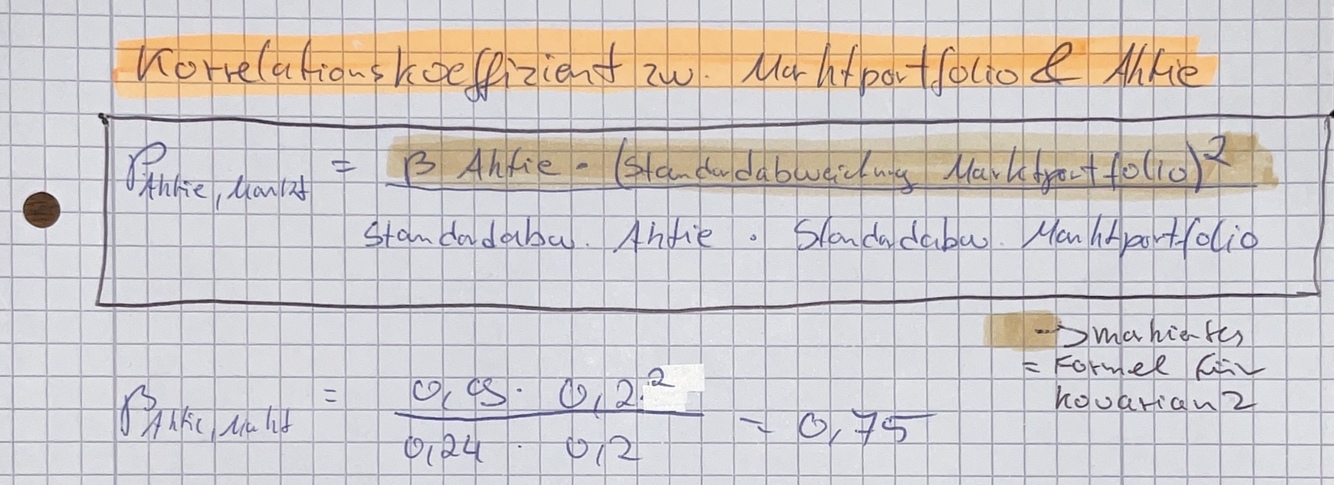 Korrelationskoeffizient zw. Marktportfolio & Aktie
ρ Aktie, Markt = β Aktie · (Standardabweichung Marktportfolio)²
Standardabw. Aktie · Standardabw. Marktportfolio
→ markiertes
= Formel für
Kovarianz
ρ Aktie, Markt = 0,9 · 0,2² = 0,75
0,24 · 0,2